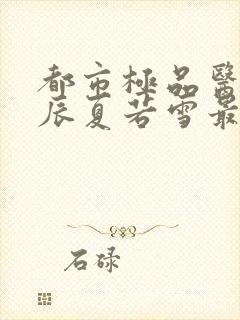 都市極品醫
辰夏若雪最
石碌